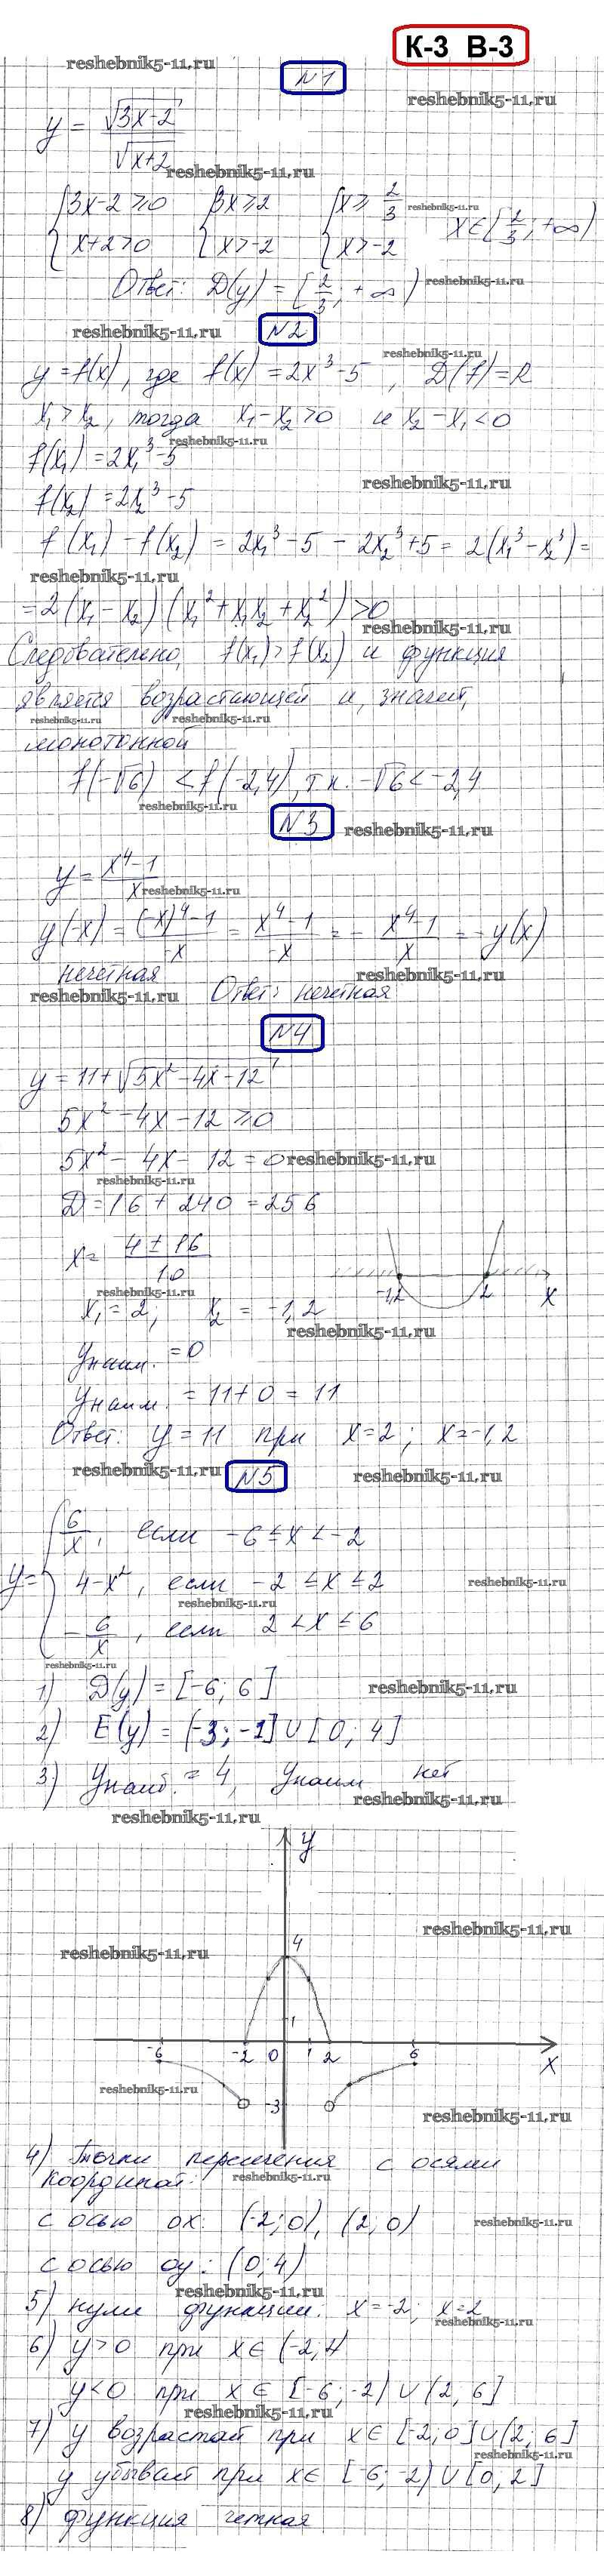 К-3 В-3
reshebnik5-11,ru
N1
reshebnik5-11,ru
y = √(3x-2) / √(x+2)
reshebnik5-11,ru
{3x-2≥0 {3x≥2 {x≥ 2/3 reshebnik5-11,ru x∈[2/3; +∞)
{x+2>0 {x>-2 {x>-2
Ответ: D(y) = [2/3; +∞) reshebnik5-11,ru
reshebnik5-11,ru N2
reshebnik5-11,ru
y=f(x), где f(x) = 2x³-5, D(f)=R
x₁>x₂, тогда x₁-x₂>0 и x₂-x₁<0
reshebnik5-11,ru
f(x₁) = 2x₁³-5
reshebnik5-11,ru
f(x₂) = 2x₂³-5
f(x₁) - f(x₂) = 2x₁³-5 - 2x₂³+5 = 2(x₁³-x₂³) =
reshebnik5-11,ru
=2(x₁-x₂)(x₁²+x₁x₂+x₂²)>0
reshebnik5-11,ru
Следовательно, f(x₁)>f(x₂) и функция
является возрастающей и, значит,
reshebnik5-11,ru reshebnik5-11,ru
монотонной
f(-√6) < f(-2,4), т.к. -√6 < -2,4
reshebnik5-11,ru
N3 reshebnik5-11,ru
y = (x⁴-1)/x
reshebnik5-11,ru
y(-x) = ((-x)⁴-1)/(-x) = (x⁴-1)/(-x) = - (x⁴-1)/x = -y(x)
нечетная reshebnik5-11,ru
reshebnik5-11,ru Ответ: нечетная
N4
y = 11+√(5x²-4x-12)
5x²-4x-12≥0
5x²-4x-12=0 reshebnik5-11,ru
reshebnik5-11,ru
D=16+240=256
x = (4±16)/10
-1,2 2 x
reshebnik5-11,ru
x₁=2; x₂ = -1,2
reshebnik5-11,ru
yнаим. = 0
yнаим. = 11+0 = 11
Ответ: y=11 при x=2; x=-1,2
reshebnik5-11,ru N5 reshebnik5-11,ru
6/x, если -6≤x<-2
y={ 4-x², если -2≤x≤2 reshebnik5-11,ru
reshebnik5-11,ru
-6/x, если 2<x≤6
reshebnik5-11,ru
1) D(y) = [-6; 6] reshebnik5-11,ru
2) E(y) = (-3; -1]∪[0; 4]
3) yнаиб. = 4, yнаим нет
reshebnik5-11,ru
reshebnik5-11,ru
y
reshebnik5-11,ru
reshebnik5-11,ru 4
1
-6 -2 0 1 2 6 x
reshebnik5-11,ru -3 reshebnik5-11,ru
4) Точки пересечения с осями
координат: reshebnik5-11,ru
с осью ox: (-2;0), (2;0) reshebnik5-11,ru
с осью oy: (0;4)
reshebnik5-11,ru
5) нули функции: x=-2; x=2
reshebnik5-11,ru
6) y>0 при x∈(-2;
y<0 при x∈[-6;-2)∪(2;6]
reshebnik5-11,ru
7) y возрастай при x∈[-2;0]∪(2;6]
reshebnik5-11,ru
y убывает при x∈[-6;-2)∪[0,2]
8) функция четная